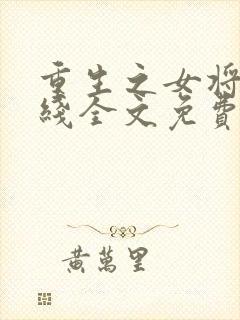 重生之女将
线全文免费
黄萬里